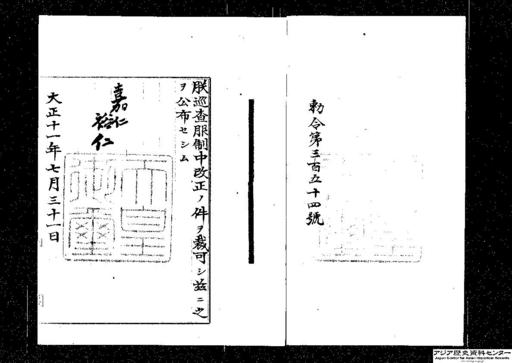 勅令第三百五十四號
朕巡査服制中改正ノ件ヲ裁可シ茲ニ之
ヲ公布セシム
嘉仁
裕仁
大正十一年七月三十一日
天皇
御璽
アジア歴史資料センター
Japan Center for Asian Historical Records